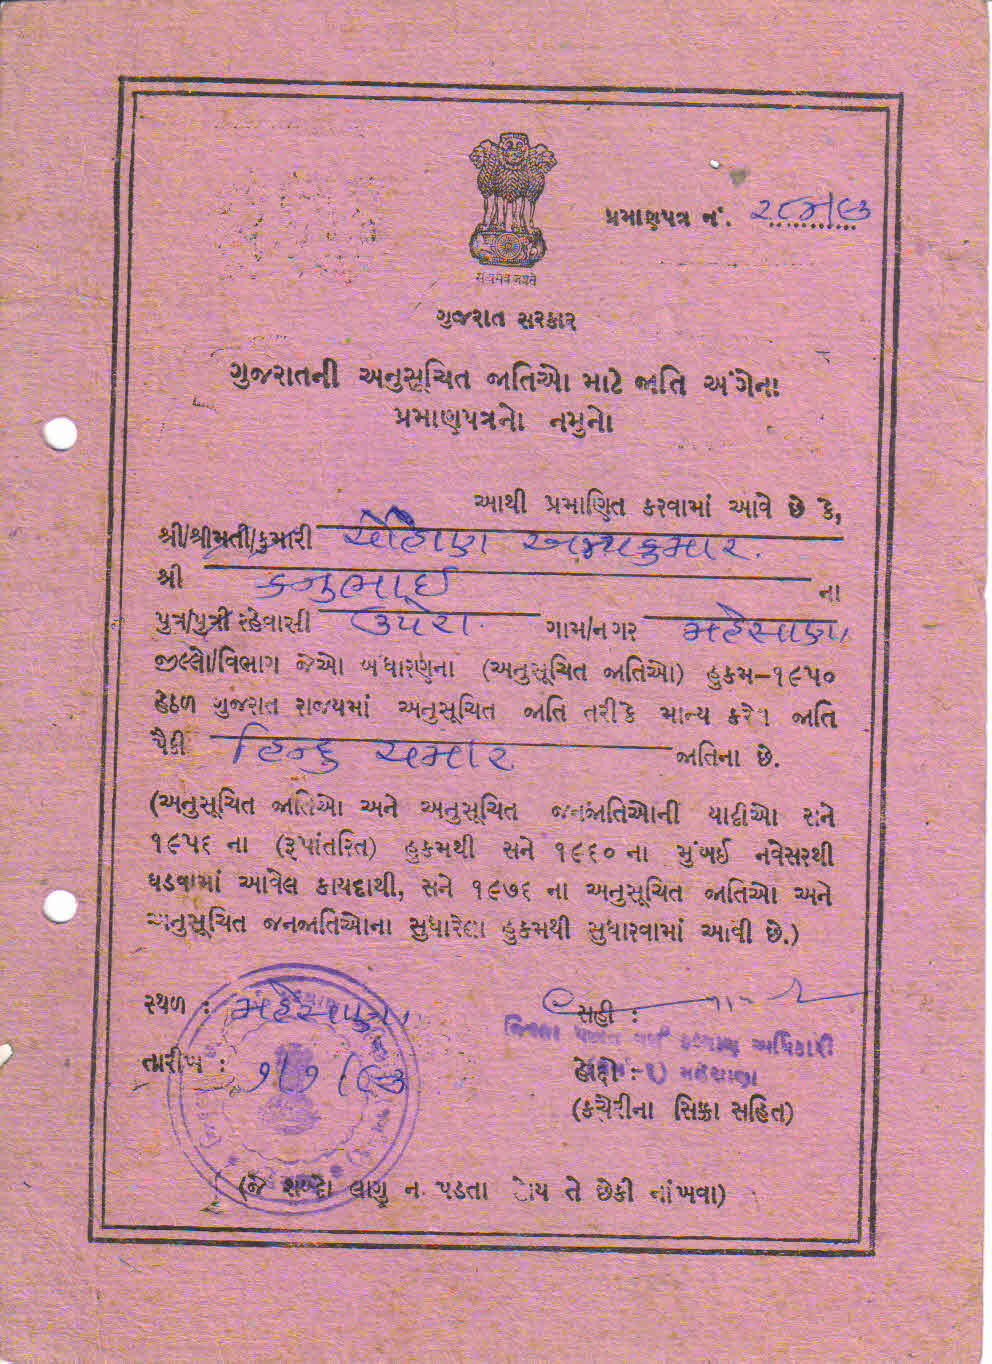 પ્રમાણપત્ર નં.
સત્યમેવ જયતે
ગુજરાત સરકાર
ગુજરાતની અનુસૂચિત જાતિઓ માટે જાતિ અંગેના
પ્રમાણપત્રનો નમુનો
આથી પ્રમાણિત કરવામાં આવે છે કે,
શ્રી/શ્રીમતી/કુમારી ચૌહાણ
શ્રી કનુભાઈ ના
પુત્ર/પુત્રી રહેવાસી ઉપેરા ગામ/નગર મહેસાણા
જીલ્લો/વિભાગ જેઓ બંધારણના (અનુસૂચિત જાતિઓ) હુકમ-૧૯૫૦
હેઠળ ગુજરાત રાજ્યમાં અનુસૂચિત જાતિ તરીકે માન્ય કરેલ જાતિ
પૈકી હિન્દુ ચમાર જાતિના છે.
(અનુસૂચિત જાતિઓ અને અનુસૂચિત જનજાતિઓની યાદીઓ સને
૧૯૫૬ ના (રૂપાંતરિત) હુકમથી સને ૧૯૬૦ ના મુંબઈ નવેસરથી
ઘડવામાં આવેલ કાયદાથી, સને ૧૯૭૬ ના અનુસૂચિત જાતિઓ અને
અનુસૂચિત જનજાતિઓના સુધારેલા હુકમથી સુધારવામાં આવી છે.)
સ્થળ : મહેસાણા
સહી :
અધિકારી
તારીખ :
હોદ્દો :
(કચેરીના સિક્કા સહિત)
(જે શબ્દો લાગુ ન પડતા હોય તે છેકી નાંખવા)